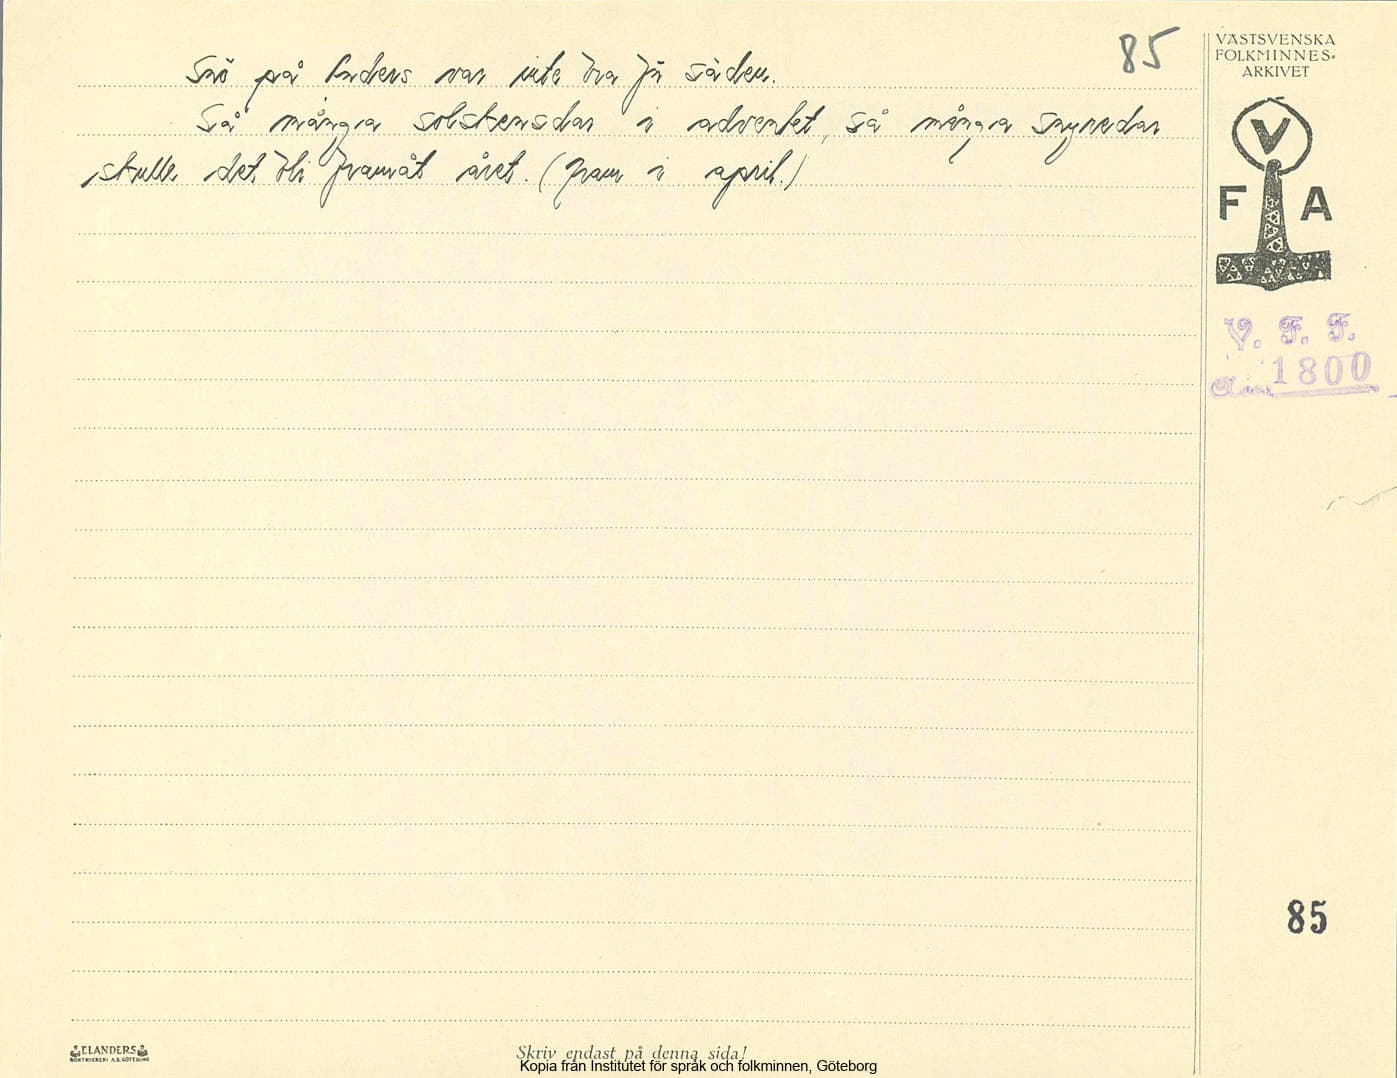 85
VÄSTSVENSKA
FOLKMINNES-
ARKIVET
Snö på Anders var inte bra för säden.
Så många solskensdar i adventet, så många snyredar
skulle det bli framåt året. (fram i april.)
V
F A
V. F. F.
1800
85
ELANDERS
BOKTRYCKERI A.B. GÖTEBORG
Skriv endast på denna sida!
Kopia från Institutet för språk och folkminnen, Göteborg